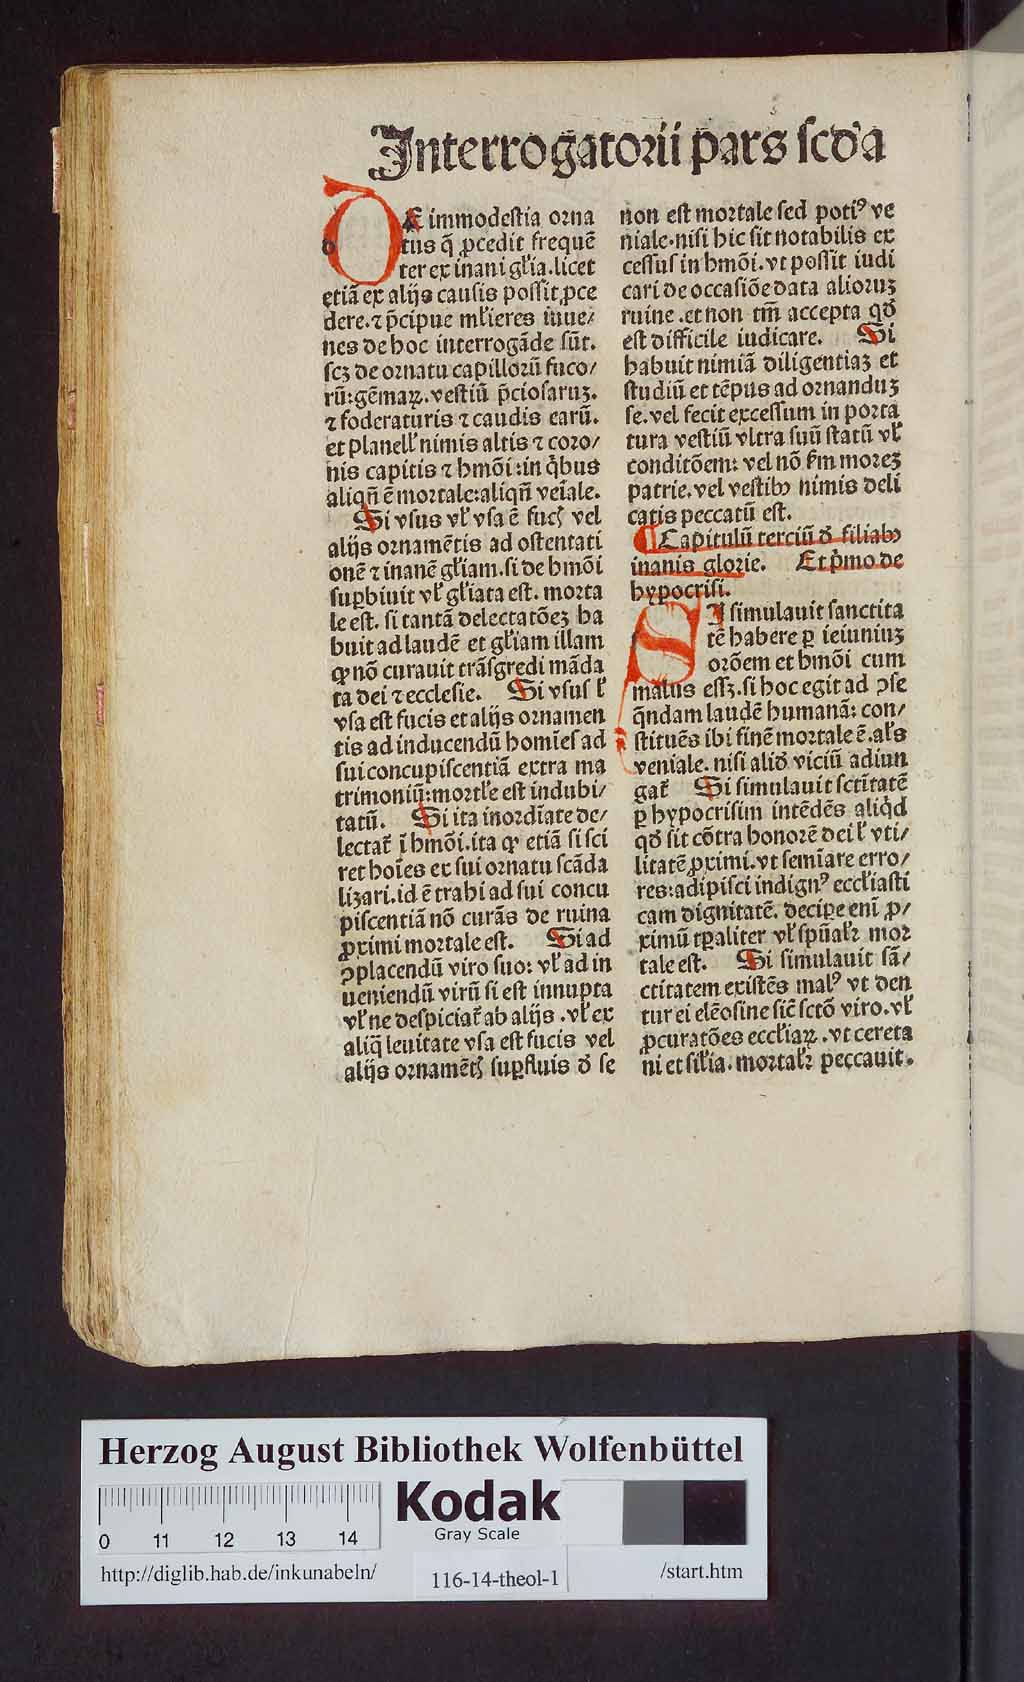 Interrogatorii pars scďa
DE immodestia orna
tus q̄ ꝓcedit frequē
ter ex inani gl'ia. licet
etiā ex alijs causis possit ꝓce
dere. ⁊ p̄cipue ml'ieres iuue/
nes de hoc interrogāde sūt.
scꝫ de ornatu capillorū fuco/
rū: gēmaꝝ. vestiū p̄ciosaruꝫ.
⁊ foderaturis ⁊ caudis earū.
et planell' nimis altis ⁊ coro/
nis capitis ⁊ hmōi: in q̇bus
aliqn̄ ē mortale: aliqn̄ veīale.
Si vsus vl' vsa ē fucꝭ vel
alijs ornamētis ad ostentati
onē ⁊ inanē gl'iam. si de hmōi
suꝑbiuit vl' gl'iata est. morta
le est. si tantā delectatōeꝫ ha
buit ad laudē et gl'iam illam
ꝙ nō curauit trāsgredi māda
ta dei ⁊ ecclesie. Si vsus l'
vsa est fucis et alijs ornamen
tis ad inducendū homīes ad
sui concupiscentiā extra ma
trimoniū: mortl'e est indubi/
tatū. Si ita inordīate de/
lectat̄ ī hmōi. ita ꝙ etiā si sci
ret hoīes ex sui ornatu scāda
lizari. id ē trahi ad sui concu
piscentiā nō curās de ruina
ꝓximi mortale est. Si ad
ꝯplacendū viro suo: vl' ad in
ueniendū virū si est innupta
vl' ne despiciat̄ ab alijs. vl' ex
aliq̄ leuitate vsa est fucis vel
alijs ornamētꝭ suꝑfluis ď se
non est mortale sed potiꝰ ve
niale. nisi hic sit notabilis ex
cessus in hmōi. vt possit iudi
cari de occasiōe data alioruꝫ
ruine. et non tm̄ accepta qď
est difficile iudicare. Si
habuit nimiā diligentiaꝫ et
studiū et tēpus ad ornanduꝫ
se. vel fecit excessum in porta
tura vestiū vltra suū statū vl'
conditōem: vel nō s'm moreꝫ
patrie. vel vestibꝰ nimis deli
catis peccatū est.
Capitulū terciū ď filiabꝰ
inanis glorie. Et p̄mo de
hypocrisi.
SI simulauit sanctita
tē habere ꝑ ieiuniuꝫ
orōem et hmōi cum
malus essꝫ. si hoc egit ad ꝯse
q̄ndam laudē humanā: con/
stituēs ibi finē mortale ē. al's
veniale. nisi aliď viciū adiun
gat̄ Si simulauit sctītatē
ꝑ hypocrisim intēdēs aliq̇d
qď sit cōtra honorē dei l' vti/
litatē ꝓximi. vt semīare erro/
res: adipisci indignꝰ eccl'iasti
cam dignitatē. decipe enī ꝓ/
ximū tꝑaliter vl' spūal'r mor
tale est. Si simulauit sā/
ctitatem existēs malꝰ vt den
tur ei elēosine sic̄ sctō viro. vl'
ꝓcuratōes eccl'iaꝝ. vt cereta
ni et sil'ia. mortal'r peccauit.
Herzog August Bibliothek Wolfenbüttel
0 11 12 13 14
Kodak
Gray Scale
http://diglib.hab.de/inkunabeln/ 116-14-theol-1 /start.htm